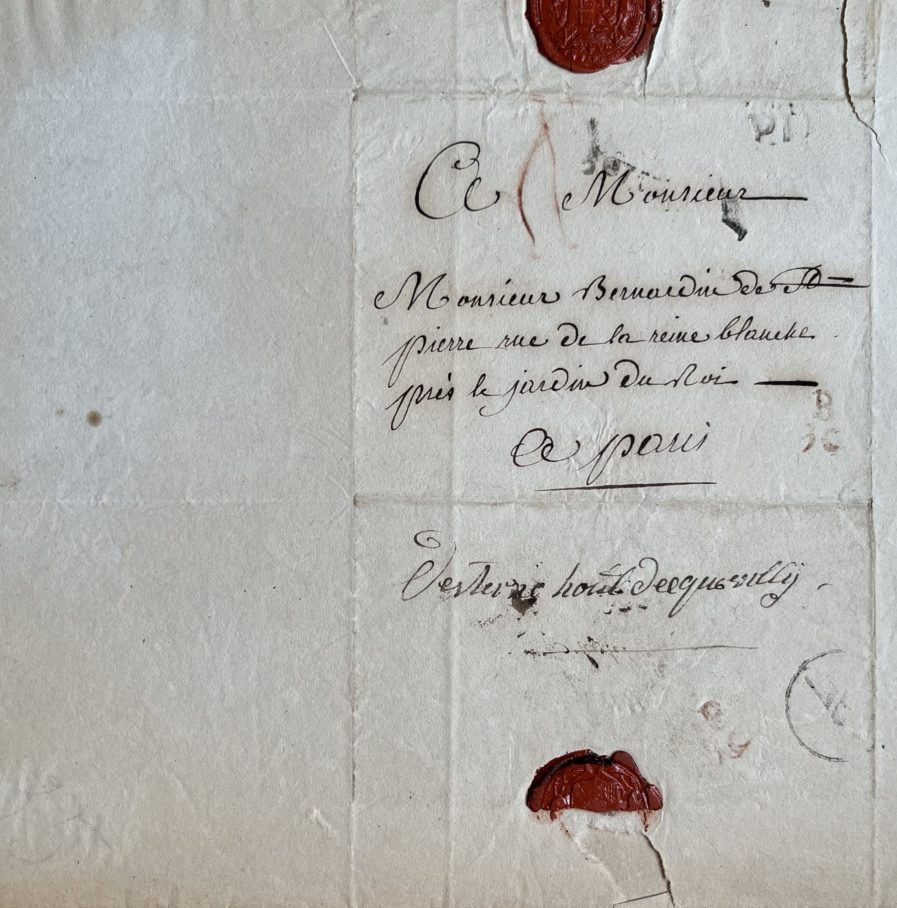 A Monsieur
Monsieur Bernardin de St
pierre rue de la reine blanche
près le jardin du Roi
A paris
B